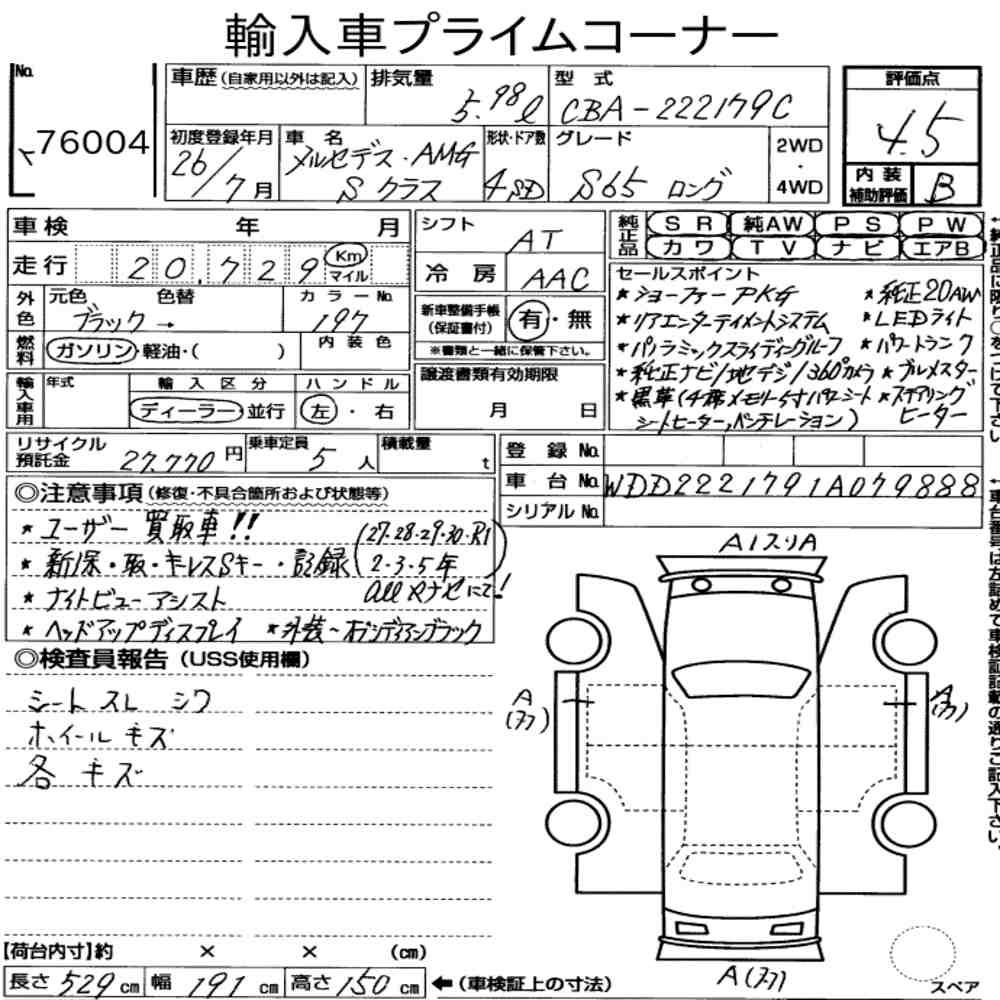 輸入車プライムコーナー
No. 76004
車歴(自家用以外は記入)
排気量 5.98ℓ
型式 CBA-222179C
評価点 4.5
初度登録年月 26/7月
車名 メルセデス・AMG Sクラス
形状・ドア数 4SD
グレード S65 ロング
2WD・4WD
内装補助評価 B
車検 年 月
シフト AT
純正品 SR 純AW PS PW
カワ TV ナビ エアB
走行 20,729 Km マイル
冷房 AAC
外色 元色 色替 カラーNo.
ブラック→ 197
内装色
燃料 ガソリン・軽油・( )
新車整備手帳(保証書付) 有・無
※書類と一緒に保管下さい。
セールスポイント
*ショーファーPKG *純正20AW
*リアエンターテイメントシステム *LEDライト
*パノラミックスライディングルーフ *パワートランク
*純正ナビ/地デジ/360°カメラ *ブルメスター
*黒革(4席メモリー付パワーシート *ステアリング
シートヒーター,ベンチレーション) ヒーター
輸入車用 年式 輸入区分 ハンドル
ディーラー・並行 左・右
譲渡書類有効期限
月 日
リサイクル預託金 27.770円
乗車定員 5人
積載量 t
登録No.
車台No. WDD2221791A079888
シリアルNo.
◎注意事項(修復・不具合箇所および状態等)
*ユーザー買取車!!
*新保・取・キレスSキー・記録(27.28.29.30.R1
2.3.5年
allヤナセにて!)
*ナイトビューアシスト
*ヘッドアップディスプレイ *外装~オブシディアンブラック
◎検査員報告(USS使用欄)
シートスレ シワ
ホイールキズ
各キズ
A1スリA
A(フフ)
A(フフ)
A(フフ)
スペア
【荷台内寸】約 × × (cm)
長さ529cm 幅191cm 高さ150cm ←(車検証上の寸法)